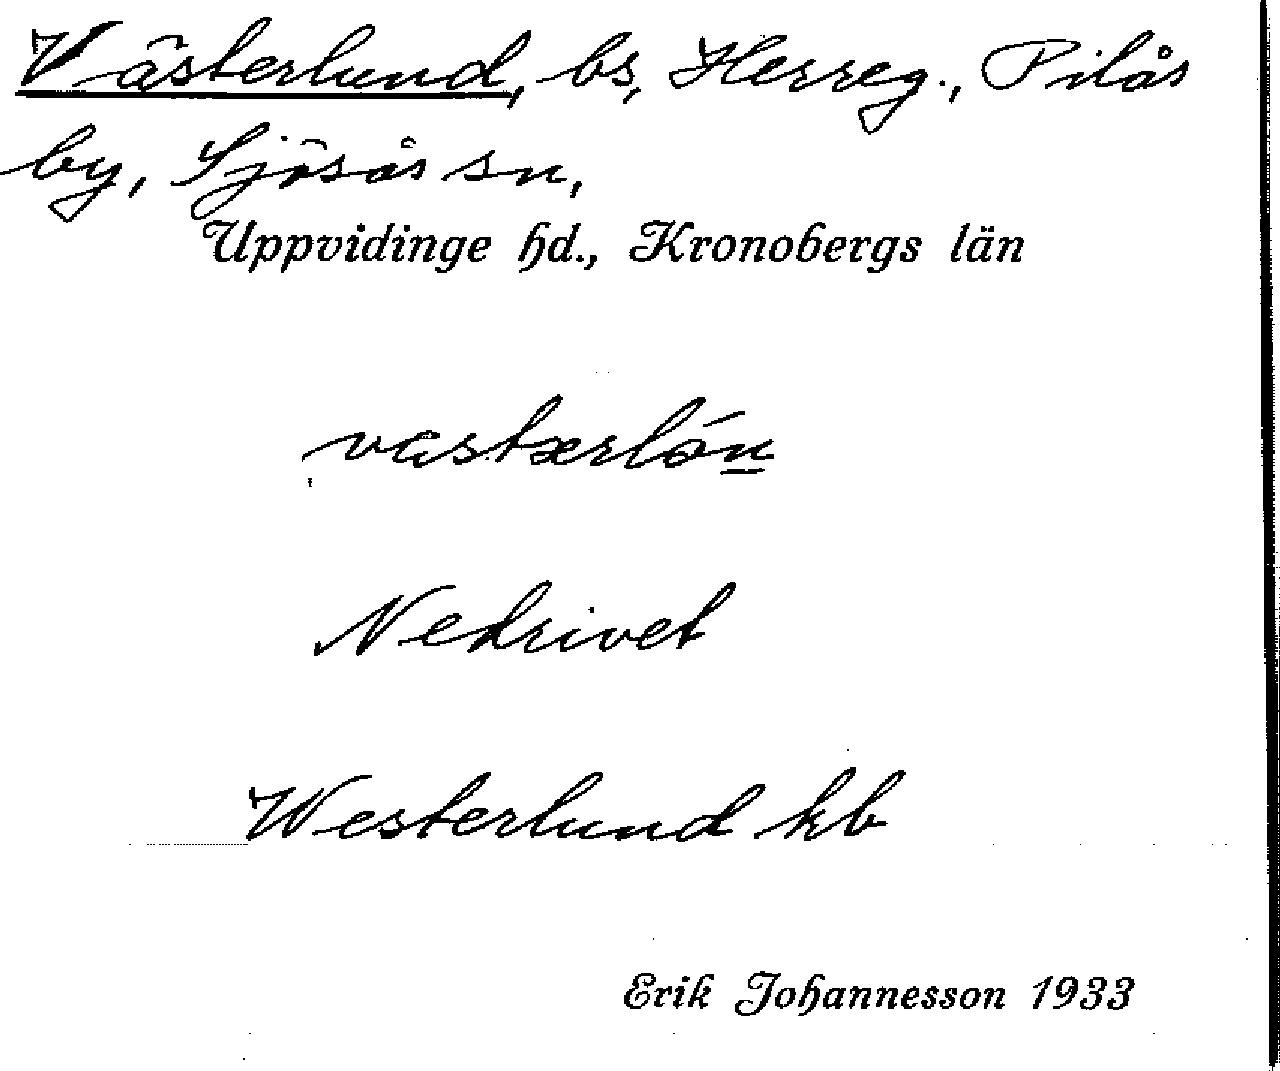 Västerlund, bs, Herreg., Pilås
by, Sjösås sn,
Uppvidinge hd., Kronobergs län
västərlón
Nedrivet
Westerlund kb
Erik Johannesson 1933